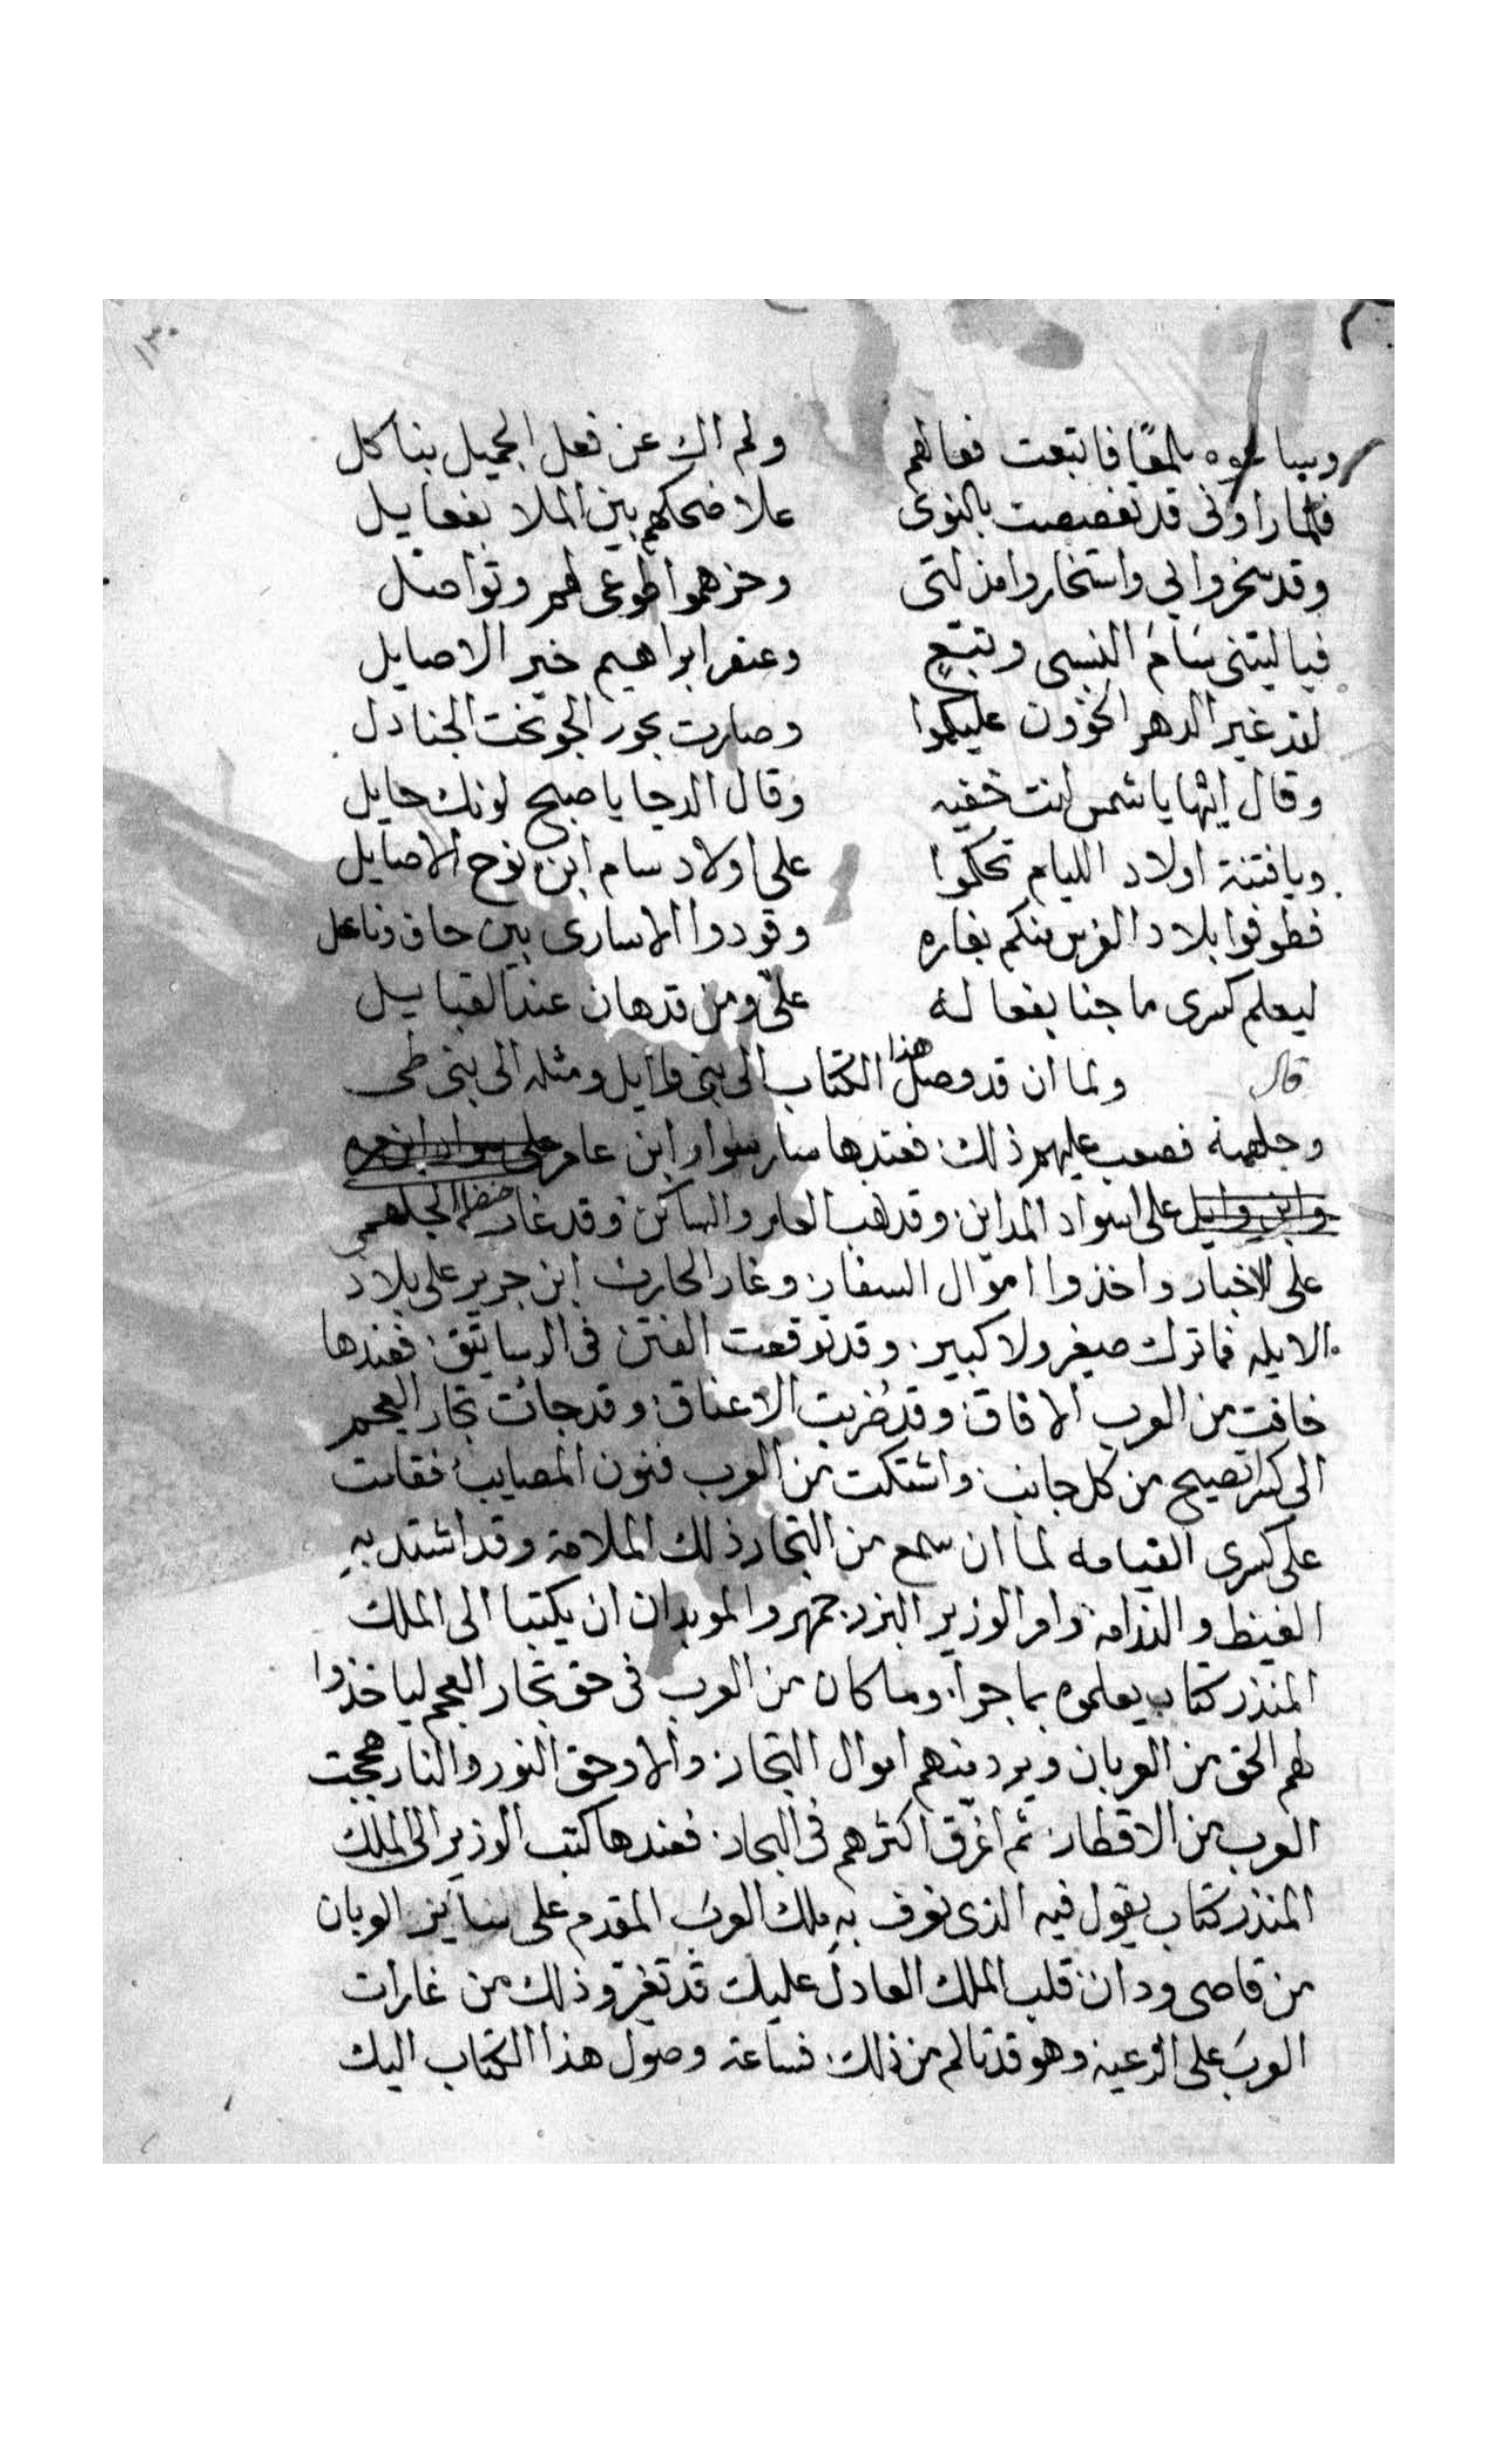 ١٣٠
وببيا بلمعًا فاتبعت فعالهم ولم اك عن فعل الجميل بناكل
فلما راونى قد تغصصت بالنوى علا ضحكهم بين الملا بفعايل
وقد سخروا بي واستخاروا مذلتى وحزهموا طوعى لهم وتواصل
فيا ليتنى سَامَ النسى وتبّع وعنفر ابراهيم خير الاصايل
لقد غير الدهر الخؤون عليكموا وصارت بحور الجو تحت الجنادل
وقال السها يا شمس انت خفيه وقال الدجا يا صبح لونك حايل
ويا فتنة اولاد الليام تحكموا على اولاد سام ابن نوح الاصايل
فطوفوا بلاد الفرس منكم بغاره وقودوا الاسارى بين حاف وناعل
ليعلم كسرى ما جنا بفعاله علىّ ومن قد هان عند القبايل
قال ولما ان قد وصل هذا الكتاب الى بنى وايل ومثله الى بنى طى
وجلهمة فصعب عليهم ذلك فعندها سار سوار ابن عامر على سواد
وابن وايل على اسواد المداين وقد هب العامر والساكن وقد غار حنضله الجلهمى
على الاخبار واخذوا اموال السفار وغار الحارث ابن جرير على بلاد
الايله فما ترك صيغر ولا كبير وقد توقعت الفتن فى الرساتيق فعندها
خافت من العرب الافاق وقد ضربت الاعناق وقد جائت تجار العجم
الى كسرا تصيح من كل جانب واشتكت من العرب فنون المصايب فقامت
على كسرى القيامه لما ان سمع من التجار ذلك الملامة وقد اشتد به
الغيظ والندامة وامر الوزير البزرجمهر والموبدان ان يكتبا الى الملك
المنذر كتاب يعلموه بما جرا وما كان من العرب فى حق تجار العجم لياخذوا
لهم الحق من العربان ويرد منهم اموال التجار والا وحق النور والنار هججت
العرب من الاقطار ثم اغرق اكثرهم فى البحار فعندها كتب الوزير الى الملك
المنذر كتاب يقول فيه الذى نعرف به ملك العرب المقدم على ساير العربان
من قاصى ودان قلب الملك العادل عليك قد تغير وذلك من غارات
العرب على الرعية وهو قد تالم من ذلك فساعة وصول هذا الكتاب اليك